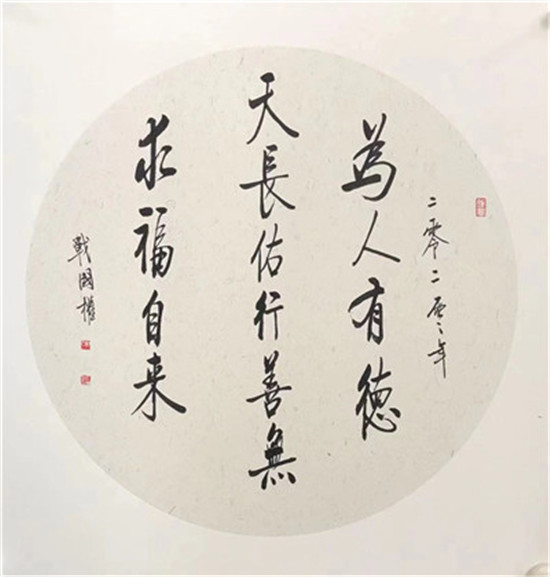 二零二零年
為人有德
天長佑行善無
求福自来
戰國權